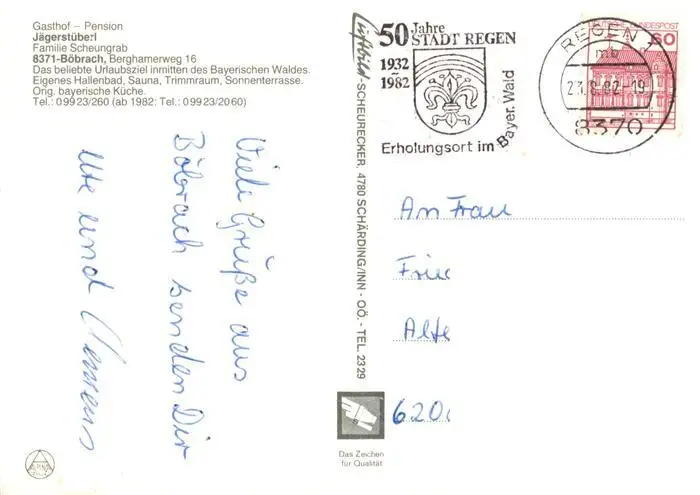 Gasthof – Pension
Jägerstüberl
Familie Scheungrab
8371-Böbrach, Berghamerweg 16
Das beliebte Urlaubsziel inmitten des Bayerischen Waldes.
Eigenes Hallenbad, Sauna, Trimmraum, Sonnenterrasse.
Orig. bayerische Küche.
Tel.: 09923/260 (ab 1982: Tel.: 09923/2060)
Viele Grüße aus
Böbrach senden Dir
Ute und Clemens
Luftbild-SCHEURECKER, 4780 SCHÄRDING/INN - OÖ. - TEL. 2329
50 Jahre
STADT REGEN
1932
1982
Erholungsort im Bayer. Wald
DEUTSCHE BUNDESPOST
60
REGEN 1
mb
23.8.82-19
8370
An Frau
Frie
Alte
620
Das Zeichen
für Qualität
ALPINA